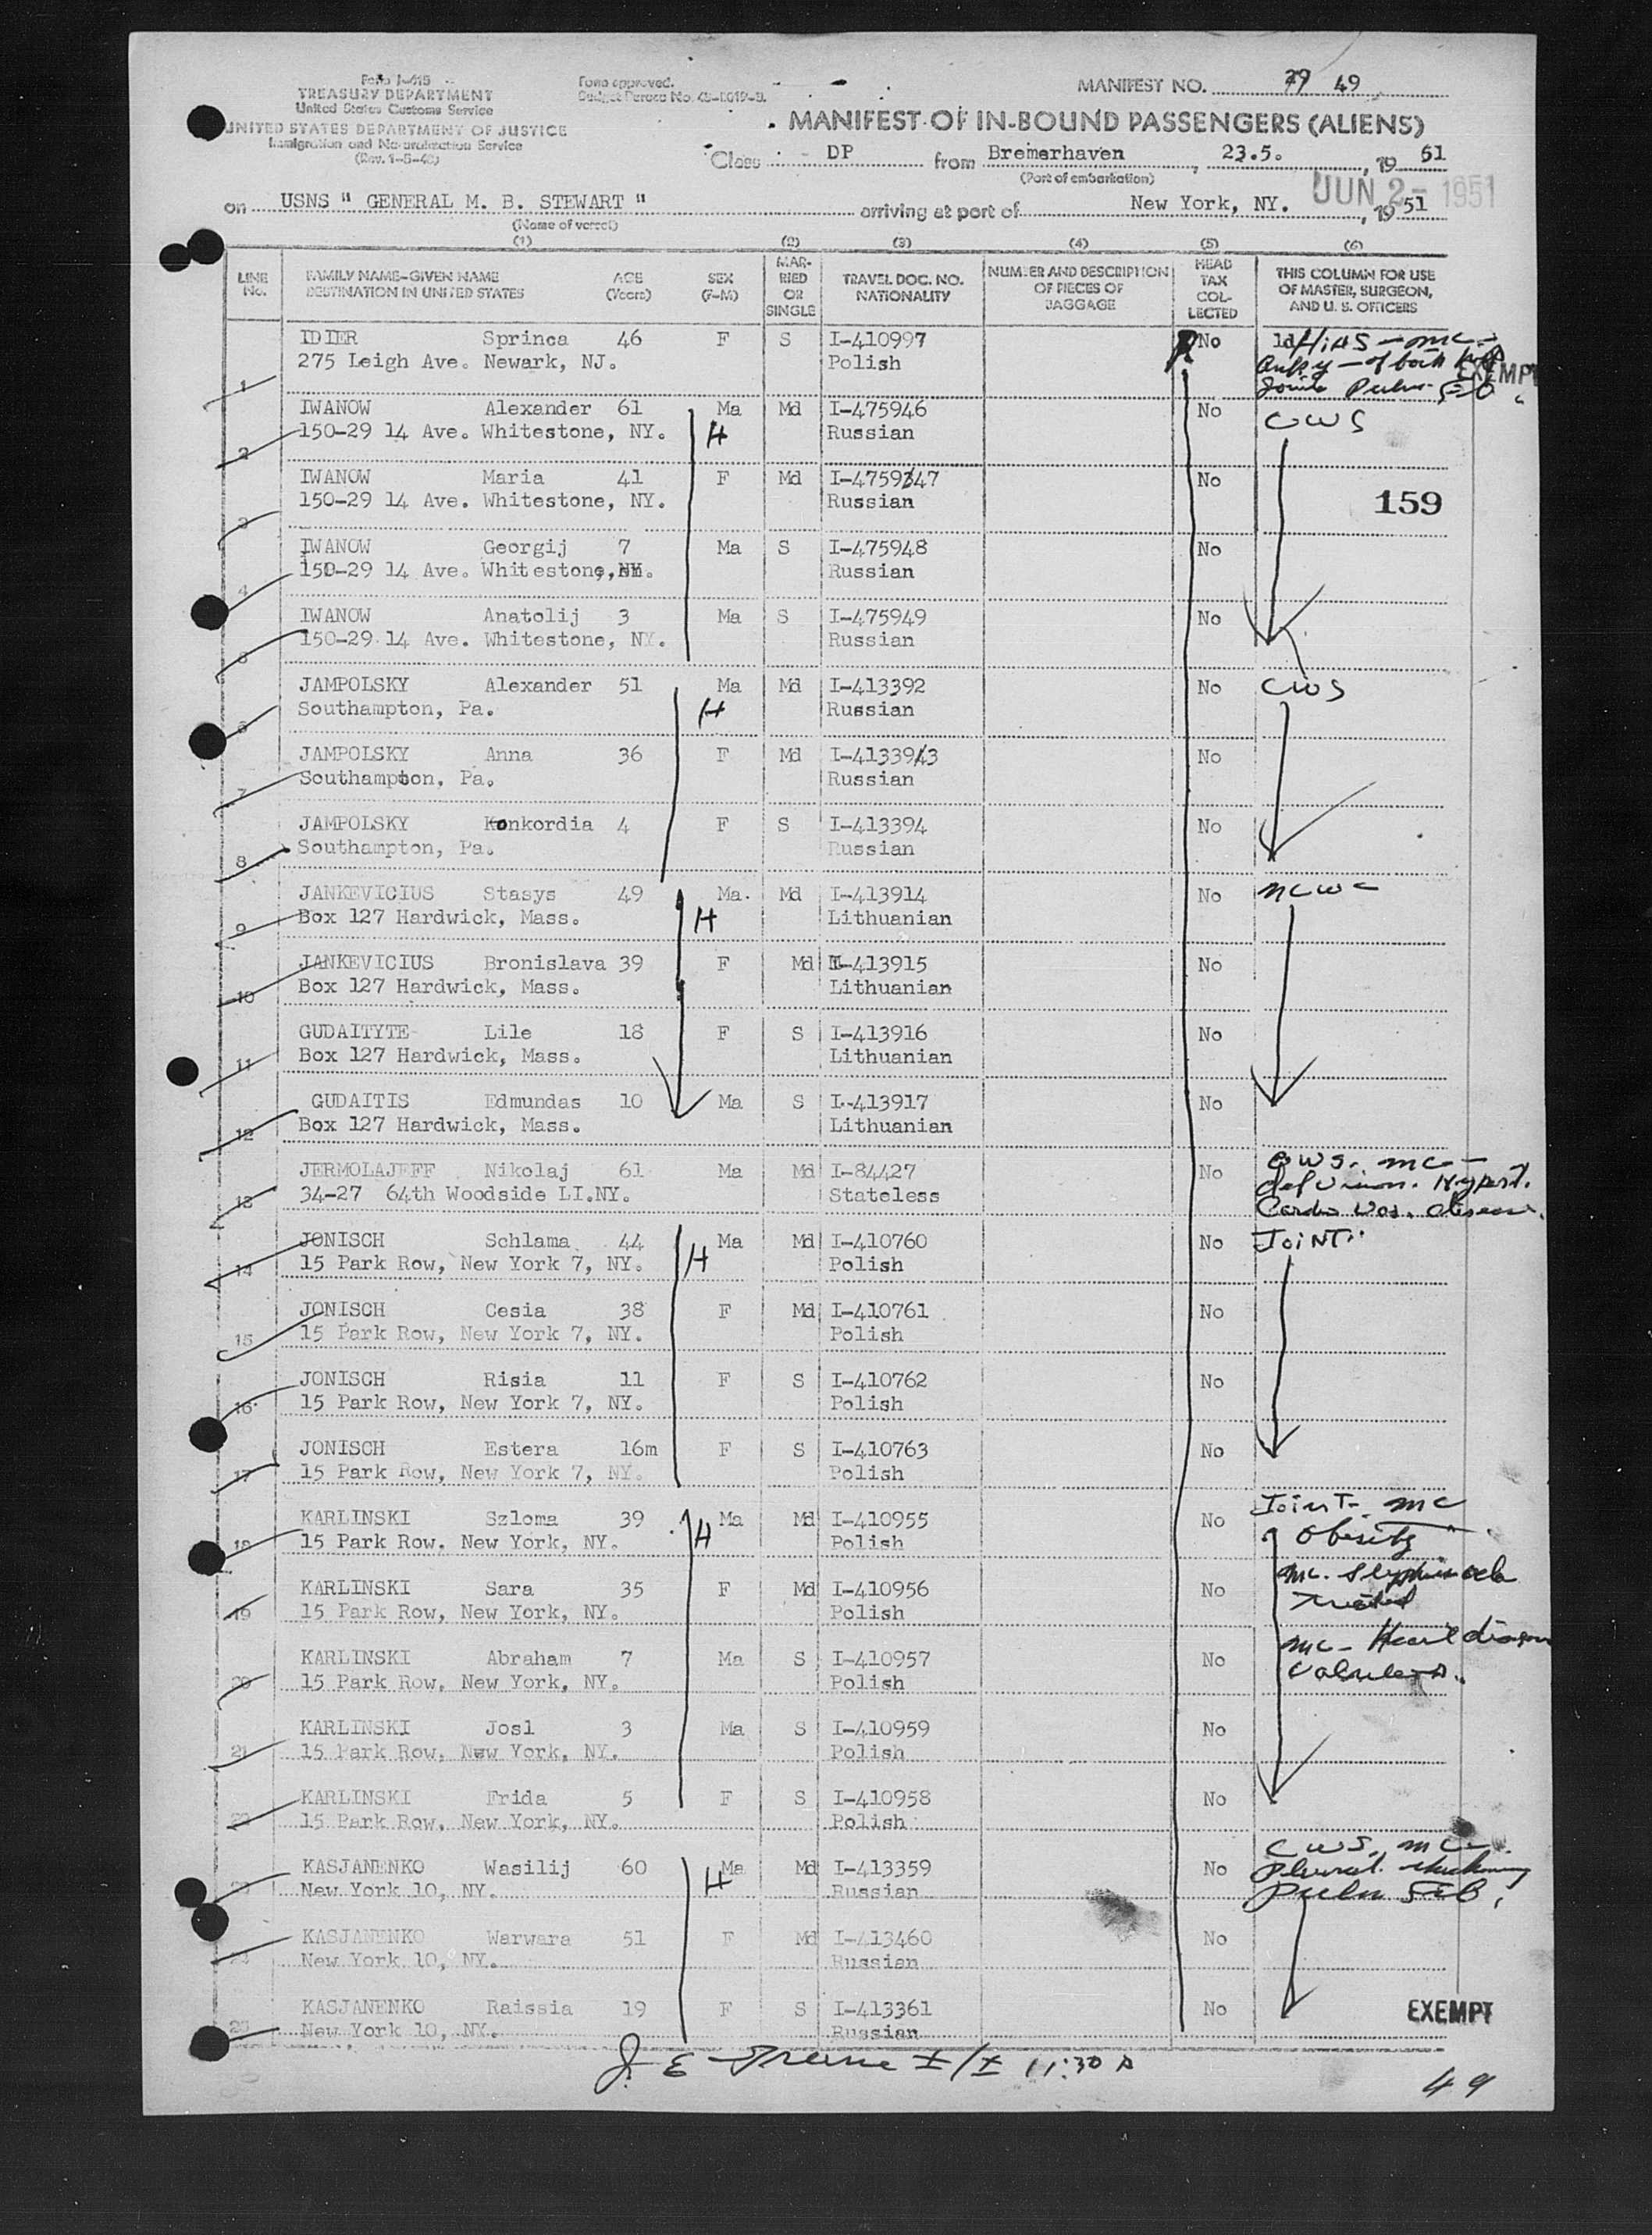 Form I-415
TREASURY DEPARTMENT
United States Customs Service
UNITED STATES DEPARTMENT OF JUSTICE
Immigration and Naturalization Service
(Rev. 1-5-48)
Form approved.
MANIFEST NO. 49
MANIFEST OF IN-BOUND PASSENGERS (ALIENS)
Class DP from Bremerhaven, 23.5., 19 51
(Port of embarkation)
on USNS " GENERAL M. B. STEWART " arriving at port of New York, NY. JUN 2 - 1951, 19 51
(Name of vessel)
(1) (2) (3) (4) (5) (6)
LINE No. FAMILY NAME-GIVEN NAME DESTINATION IN UNITED STATES AGE (Years) SEX (F-M) MARRIED OR SINGLE TRAVEL DOC. NO. NATIONALITY NUMBER AND DESCRIPTION OF PIECES OF BAGGAGE HEAD TAX COLLECTED THIS COLUMN FOR USE OF MASTER, SURGEON, AND U. S. OFFICERS
IDIER Sprinca 46 F S I-410997 No Hias - mc -
1 275 Leigh Ave. Newark, NJ. Polish EXEMPT
IWANOW Alexander 61 Ma Md I-475946 No CWS
2 150-29 14 Ave. Whitestone, NY. H Russian
IWANOW Maria 41 F Md I-475947 No
3 150-29 14 Ave. Whitestone, NY. Russian 159
IWANOW Georgij 7 Ma S I-475948 No
4 150-29 14 Ave. Whitestone, NY. Russian
IWANOW Anatolij 3 Ma S I-475949 No
5 150-29 14 Ave. Whitestone, NY. Russian
JAMPOLSKY Alexander 51 Ma Md I-413392 No CWS
6 Southampton, Pa. H Russian
JAMPOLSKY Anna 36 F Md I-413393 No
7 Southampton, Pa. Russian
JAMPOLSKY Konkordia 4 F S I-413394 No
8 Southampton, Pa. Russian
JANKEVICIUS Stasys 49 Ma. Md I-413914 No NCWC
9 Box 127 Hardwick, Mass. H Lithuanian
JANKEVICIUS Bronislava 39 F Md I-413915 No
10 Box 127 Hardwick, Mass. Lithuanian
GUDAITYTE Lile 18 F S I-413916 No
11 Box 127 Hardwick, Mass. Lithuanian
GUDAITIS Edmundas 10 Ma S I-413917 No
12 Box 127 Hardwick, Mass. Lithuanian
JERMOLAJEFF Nikolaj 61 Ma Md I-84427 No CWS. mc -
13 34-27 64th Woodside LI.NY. Stateless def vision. Hypert.
JONISCH Schlama 44 Ma Md I-410760 No JOINT
14 15 Park Row, New York 7, NY. H Polish
JONISCH Cesia 38 F Md I-410761 No
15 15 Park Row, New York 7, NY. Polish
JONISCH Risia 11 F S I-410762 No
16 15 Park Row, New York 7, NY. Polish
JONISCH Estera 16m F S I-410763 No
17 15 Park Row, New York 7, NY. Polish
KARLINSKI Szloma 39 Ma Md I-410955 No Joint - mc
18 15 Park Row, New York, NY. H Polish Obesity
KARLINSKI Sara 35 F Md I-410956 No mc.
19 15 Park Row, New York, NY. Polish treated
KARLINSKI Abraham 7 Ma S I-410957 No mc - Heart disease
20 15 Park Row, New York, NY. Polish
KARLINSKI Josl 3 Ma S I-410959 No
21 15 Park Row, New York, NY. Polish
KARLINSKI Frida 5 F S I-410958 No
22 15 Park Row, New York, NY. Polish
KASJANENKO Wasilij 60 Ma Md I-413359 No CWS. mc -
23 New York 10, NY. H Russian
KASJANENKO Warwara 51 F Md I-413460 No
24 New York 10, NY. Russian
KASJANENKO Raissia 19 F S I-413361 No EXEMPT
25 New York 10, NY. Russian
11:30 A
49